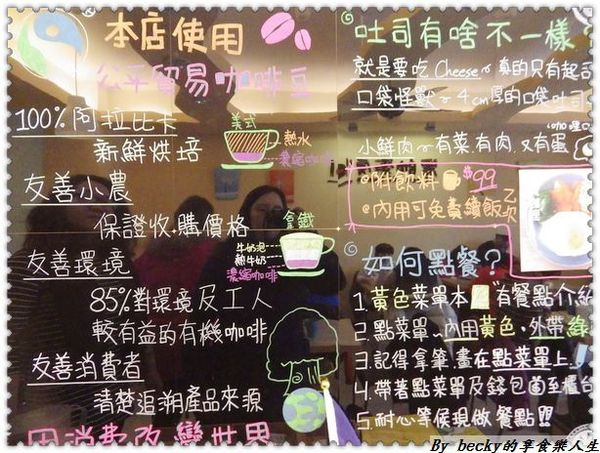 本店使用
公平貿易咖啡豆
100% 阿拉比卡
新鮮烘培
美式
熱水
濃縮咖啡
友善小農
保證收購價格
拿鐵
牛奶泡
熱牛奶
濃縮咖啡
友善環境
85%對環境及工人
較有益的有機咖啡
友善消費者
清楚追溯產品來源
用消費改變世界
吐司有啥不一樣
就是要吃 Cheese~真的只有起司
口袋怪獸~4cm厚的口袋吐司
(咖哩
小鮮肉~有菜.有肉.又有蛋
$99
@附飲料
@內用可免費續飯乙次
如何點餐?
1.黃色菜單本 有餐點介紹
2.點菜單~內用黃色.外帶綠
3.記得拿筆.畫在點菜單上
4.帶著點菜單及錢包首至櫃台
5.耐心等候現做餐點!!
By becky的享食樂人生